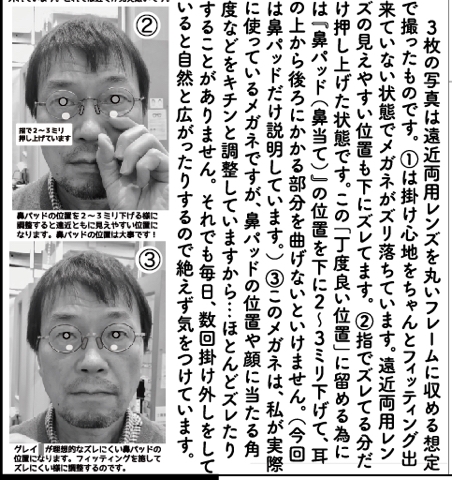 ３枚の写真は遠近両用レンズを丸いフレームに収める想定
で撮ったものです。①は掛け心地をちゃんとフィッティング出
来ていない状態でメガネがズリ落ちています。遠近両用レン
ズの見えやすい位置も下にズレてます。②指でズレてる分だ
け押し上げた状態です。この「丁度良い位置」に留める為に
は『鼻パッド（鼻当て）』の位置を下に２～３ミリ下げて、耳
の上から後ろにかかる部分を曲げないといけません。（今回
は鼻パッドだけ説明しています。）③このメガネは、私が実際
に使っているメガネですが、鼻パッドの位置や顔に当たる角
度などをキチンと調整していますから…ほとんどズレたり
することがありません。それでも毎日、数回掛け外しをして
いると自然と広がったりするので絶えず気をつけています。
②
指で２～３ミリ
押し上げています
鼻パッドの位置を２～３ミリ下げる様に
調整すると遠近ともに見えやすい位置に
なります。鼻パッドの位置は大事です！
③
グレイ が理想的なズレにくい鼻パッドの
位置になります。フィッティングを施して
ズレにくい様に調整するのです。